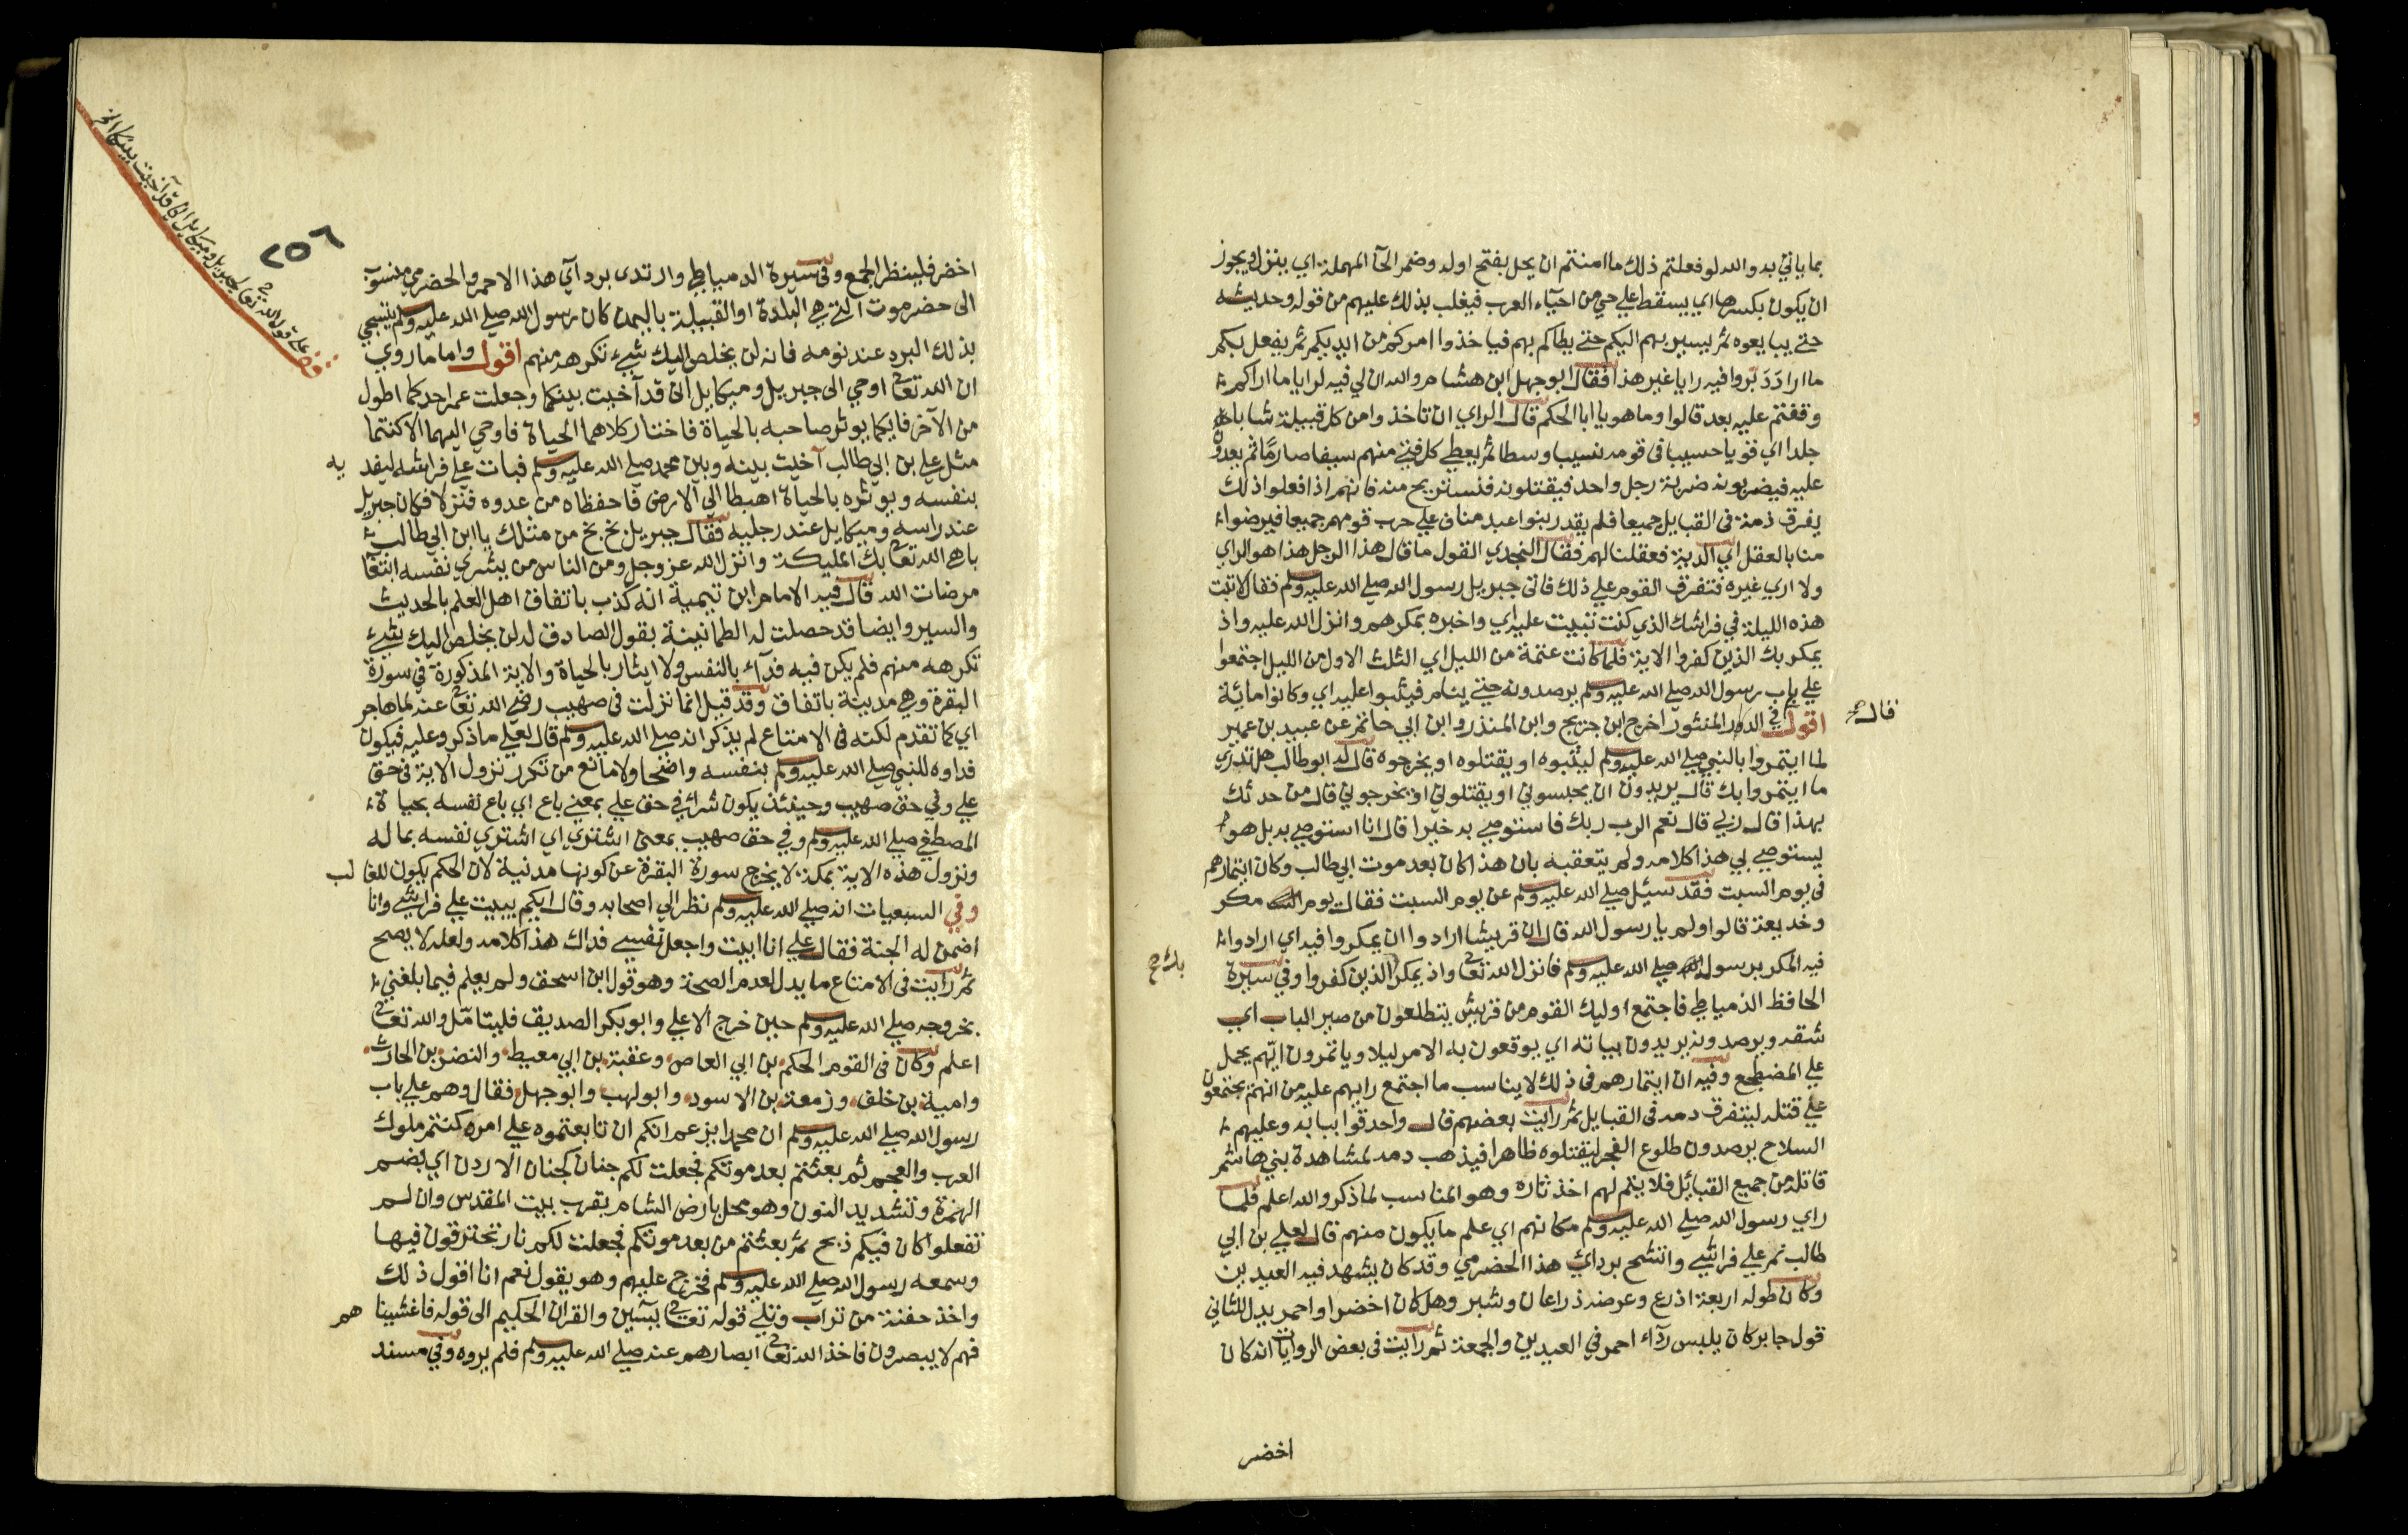 بما ياتي به والله لو فعلتم ذلك ما امنتم ان يحل بفتح اوله وضم الحآ المهملة اي ينزل ويجوز
ان يكون بكسرها اي يسقط علي حي من احيآء العرب فيغلب بذلك عليهم من قوله وحديثه
حتي يبايعوه ثم يسير بهم اليكم حتي يطاكم بهم فياخذوا امركم من ايديكم ثم يفعل بكم
ما اراد دبروا فيه رايا غير هذا فقال ابو جهل ابن هشام والله ان لي فيه لرايا ما اراكم
وقفتم عليه بعد قالوا وما هو يا ابا الحكم قال الراي ان تاخذوا من كل قبيلة شابا
جلدا اي قويا حسيبا في قومه نسيبا وسطا ثم يعطي كل فتي منهم سيفا صارما ثم يعدون
عليه فيضربونه ضربة رجل واحد فيقتلونه فنستريح منه فانهم اذا فعلوا ذلك
يفرق دمه في القبايل جميعا فلم يقدر بنوا عبد مناف علي حرب قومهم جميعا فيرضوا
منا بالعقل اي الدية فعقلنا لهم فقال النجدي القول ما قال هذا الرجل هذا هو الراي
ولا اري غيره فتفرق القوم علي ذلك فاتي جبريل رسول الله صلي الله عليه وسلم فقال لا تبت
هذه الليلة في فراشك الذي كنت تبيت عليه اي واخبره بمكرهم وانزل الله عليه واذ
يمكر بك الذين كفروا الاية فلما كانت عتمة من الليل اي الثلث الاول من الليل اجتمعوا
علي باب رسول الله صلي الله عليه وسلم يرصدونه حتي ينام فيثبوا عليه اي وكانوا مائة
اقول في الدر المنثور اخرج ابن جريج وابن المنذر وابن ابي حاتم عن عبيد بن عمير قال
لما ايتمروا بالنبي صلي الله عليه وسلم ليثبوه او يقتلوه او يخرجوه قال له ابو طالب هل تدري
ما ايتمروا بك قال يريدون ان يحبسوني او يقتلوني او يخرجوني قال من حدثك
بهذا قال ربي قال نعم الرب ربك فاستوصي به خيرا قال انا استوصي به بل هو
يستوصي بي هذا كلامه ولم يتعقبه بان هذا كان بعد موت ابي طالب وكان ايتمارهم
في يوم السبت فقد سئل صلي الله عليه وسلم عن يوم السبت فقال يوم مكر
وخديعة قالوا ولم يا رسول الله قال ان قريشا ارادوا ان يمكروا فيه اي ارادوا
فيه المكر برسول الله صلي الله عليه وسلم فانزل الله تعا واذ يمكر بك الذين كفروا وفي سيرة
الحافظ الدمياطي فاجتمع اوليك القوم من قريش يتطلعون من صير الباب اي
شقه ويرصدونه يريدون بياته اي يوقعون به الامر ليلا وياتمرون ايهم يحمل
علي المضطجع وفيه ان ايتمارهم في ذلك لا يناسب ما اجتمع رايهم عليه من انهم يجتمعون
علي قتله ليتفرق دمه في القبايل ثم رايت بعضهم قال واحدقوا ببابه وعليهم
السلاح يرصدون طلوع الفجر ليقتلوه ظاهرا فيذهب دمه لمشاهدة بني هاشم
قاتله من جميع القبائل فلا يتم لهم اخذ ثاره وهو المناسب لما ذكر والله اعلم فلما
راي رسول الله صلي الله عليه وسلم مكانهم اي علم ما يكون منهم قال لعلي بن ابي
طالب نم علي فراشي واتشح برداي هذا الحضرمي وقد كان يشهد فيه العيدين
وكان طوله اربعة اذرع وعرضه ذراعان وشبر وهل كان اخضر او احمر يدل للثاني
قول جابر كان يلبس رداء احمر في العيدين والجمعة ثم رايت في بعض الروايات انه كان
اخضر
٢٥٦
اخضر فلينظر الجمع وفي سيرة الدمياطي وارتدي بردآي هذا الاحمر والحضرمي منسوب
الي حضرموت التي هي البلدة او القبيلة باليمن كان رسول الله صلي الله عليه وسلم يتسجي
بذلك البرد عند نومه فانه لن يخلص اليك شيء تكرهه منهم اقول واما ما روي
ان الله تعا اوحي الي جبريل وميكايل اني قد آخيت بينكما وجعلت عمر احدكما اطول
من الآخر فايكما يوثر صاحبه بالحياة فاختار كلاهما الحياة فاوحي اليهما الا كنتما
مثل علي بن ابي طالب آخيت بينه وبين محمد صلي الله عليه وسلم فبات علي فراشه ليفديه
بنفسه ويوثره بالحياة اهبطا الي الارض فاحفظاه من عدوه فنزلا فكان جبريل
عند راسه وميكايل عند رجليه فقال جبريل بخ بخ من مثلك يا ابن ابي طالب
باهي الله تعا بك المليكة وانزل الله عز وجل ومن الناس من يشري نفسه ابتغا
مرضات الله قال فيه الامام ابن تيمية انه كذب باتفاق اهل العلم بالحديث
والسير وايضا قد حصلت له الطمانينة بقول الصادق له لن يخلص اليك شيء
تكرهه منهم فلم يكن فيه فدآء بالنفس ولا ايثار بالحياة والاية المذكورة في سورة
البقرة وهي مدينة باتفاق وقد قيل انما نزلت في صهيب رضي الله تعا عنه لما هاجر
اي كما تقدم لكنه في الامتاع لم يذكر انه صلي الله عليه وسلم قال لعلي ما ذكر وعليه فيكون
فداوه للنبي صلي الله عليه وسلم بنفسه واضحا ولا مانع من تكرر نزول الاية في حق
علي وفي حق صهيب وحينئذ يكون شرائ في حق علي بمعني باع اي باع نفسه بحياة
المصطفي صلي الله عليه وسلم وفي حق صهيب بمعني اشتري اي اشتري نفسه بماله
ونزول هذه الاية بمكة لا يخرج سورة البقرة عن كونها مدنية لان الحكم يكون للغالب
وفي السبعيات انه صلي الله عليه وسلم نظر الي اصحابه وقال ايكم يبيت علي فراشي وانا
اضمن له الجنة فقال علي انا ابيت واجعل نفسي فداك هذا كلامه ولعله لا يصح
ثم رايت في الامتاع ما يدل لعدم الصحة وهو قول ابن اسحق ولم يعلم فيما بلغني
بخروجه صلي الله عليه وسلم حين خرج الا علي وابو بكر الصديق فليتامل والله تعا
اعلم وكان في القوم الحكم بن ابي العاص وعقبة بن ابي معيط والنضر بن الحارث
وامية بن خلف وزمعة بن الاسود وابو لهب وابو جهل فقال وهم علي باب
رسول الله صلي الله عليه وسلم ان محمدا يزعم انكم ان تابعتموه علي امره كنتم ملوك
العرب والعجم ثم بعثتم بعد موتكم فجعلت لكم جنان كجنان الاردن اي بضم
الهمزة وتشديد النون وهو محل بارض الشام بقرب بيت المقدس وان لم
تفعلوا كان فيكم ذبح ثم بعثتم من بعد موتكم فجعلت لكم نار تحترقون فيها
وسمعه رسول الله صلي الله عليه وسلم فخرج عليهم وهو يقول نعم انا اقول ذلك
واخذ حفنة من تراب وتلي قوله تعا يس والقران الحكيم الي قوله فاغشيناهم
فهم لا يبصرون فاخذ الله تعا ابصارهم عنه صلي الله عليه وسلم فلم يروه وفي مسند